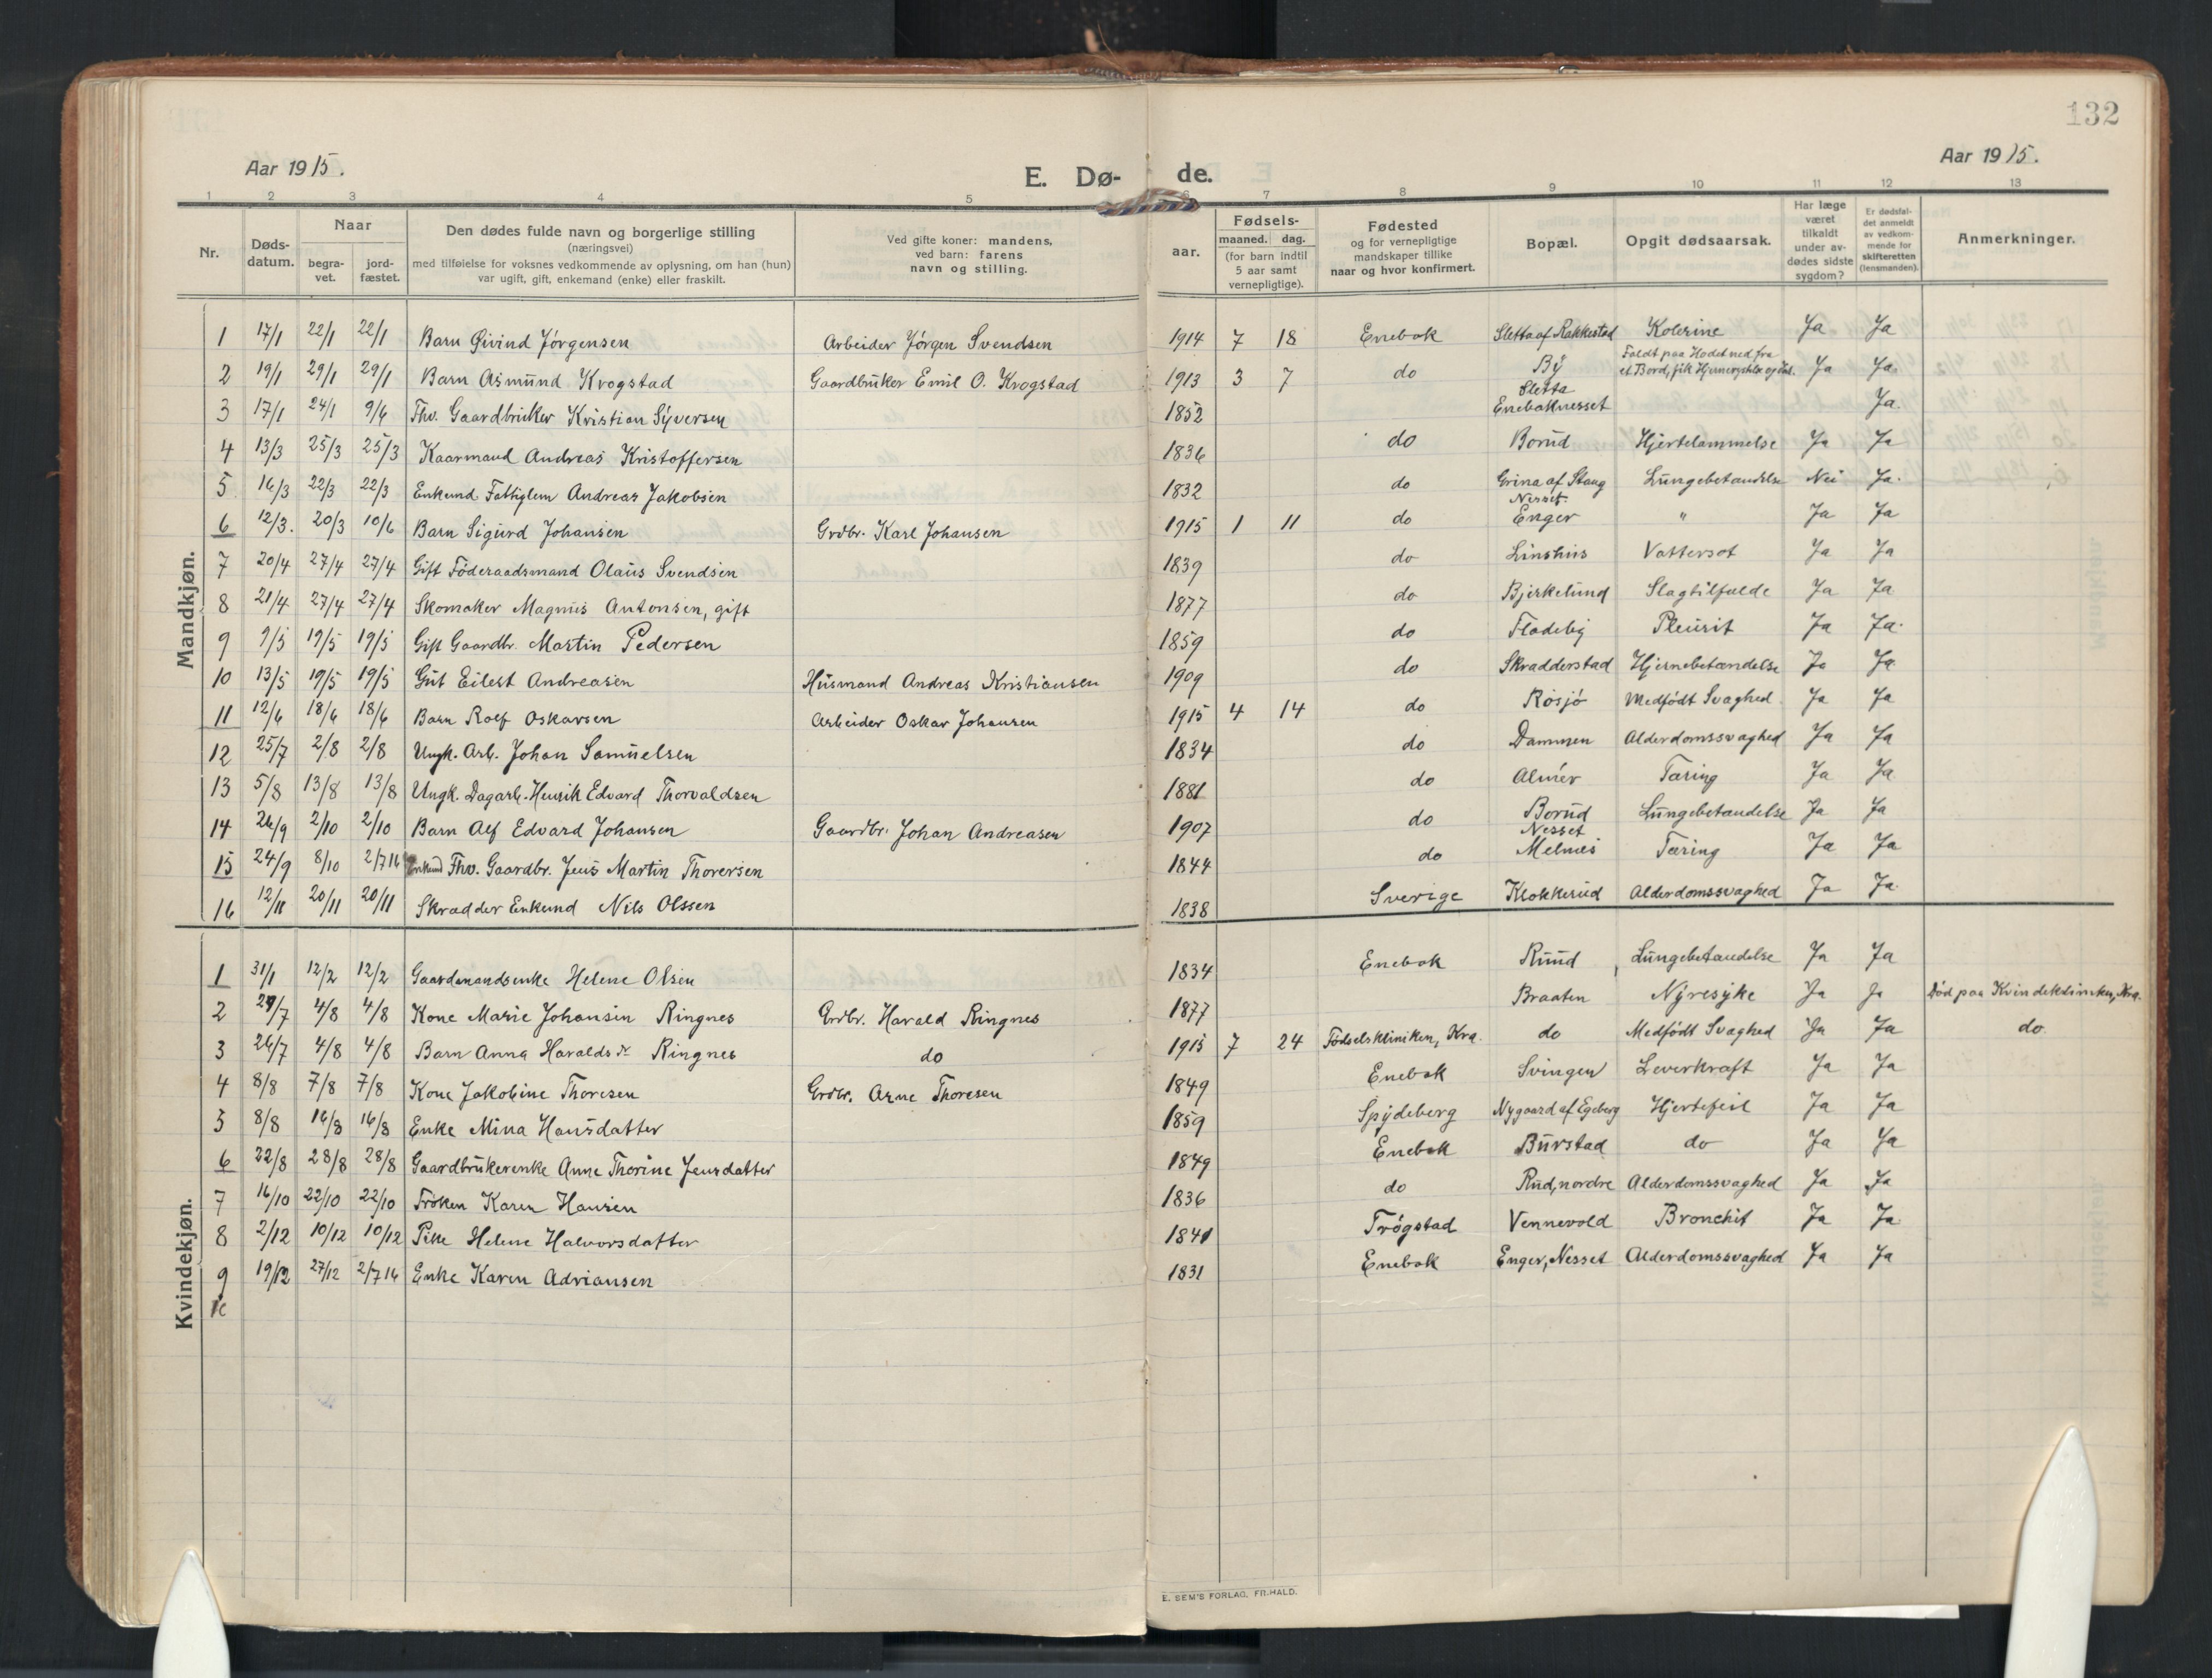 132
Aar 1915. E. Dø- de. Aar 1915.
1 2 3 4 5 6 7 8 9 10 11 12 13
Nr.
Døds-
datum.
Naar
begra-
vet.
jord-
fæstet.
Den dødes fulde navn og borgerlige stilling
(næringsvei)
med tilføielse for voksnes vedkommende av oplysning, om han (hun)
var ugift, gift, enkemand (enke) eller fraskilt.
Ved gifte koner: mandens,
ved barn: farens
navn og stilling.
aar.
Fødsels-
maaned. dag.
(for barn indtil
5 aar samt
vernepligtige).
Fødested
og for vernepligtige
mandskaper tillike
naar og hvor konfirmert.
Bopæl.
Opgit dødsaarsak.
Har læge
været
tilkaldt
under av-
dødes sidste
sygdom?
Er dødsfal-
det anmeldt
av vedkom-
mende for
skifteretten
(lensmanden).
Anmerkninger.
Mandkjøn.
1 17/1 22/1 22/1 Barn Øivind Jørgensen Arbeider Jörgen Svendsen 1914 7 18 Enebak Sletta af Rakkestad Kolerine Ja Ja
2 19/1 29/1 29/1 Barn Asmund Krogstad Gaardbruker Emil O. Krogstad 1913 3 7 do By Faldt paa Hodet ned fra et Bord, fik Hjernerystelse og Ja Ja
3 17/1 24/1 9/6 Fhv. Gaardbruker Kristian Syversen 1852 Sletta Enebaknesset Ja.
4 13/3 25/3 25/3 Kaarmand Andreas Kristoffersen 1836 do Borud Hjertelammelse Ja Ja
5 16/3 22/3 22/3 Enkemd. Fattiglem Andreas Jakobsen 1832 do Grina af Stang Lungebetandelse Nei Ja.
6 12/3. 20/3 10/6 Barn Sigurd Johansen Grdbr. Karl Johansen 1915 1 11 do Nesset Enger " Ja Ja
7 20/4 27/4 27/4 Gift Föderaadsmand Olaus Svendsen 1839 do Linshus Vattersot Ja Ja
8 21/4 27/4 27/4 Skomaker Magnus Antonsen, gift 1877 do Bjerkelund Slagtilfælde Ja Ja
9 9/5 19/5 19/5 Gift Gaardbr. Martin Pedersen 1859 do Fladeby Pleurit Ja Ja.
10 13/5 19/5 19/5 Gut Eilert Andreasen Husmand Andreas Kristiansen 1909 do Skradderstad Hjernebetændelse Ja Ja
11 12/6 18/6 18/6 Barn Rolf Oskarsen Arbeider Oskar Johansen 1915 4 14 do Rösjö Medfödt Svaghed. Ja Ja
12 25/7 2/8 2/8 Ungk. Arb. Johan Samuelsen 1834 do Dammen Alderdomssvaghed Ja Ja
13 5/8 13/8 13/8 Ungk. Dagarb. Henrik Edvard Thorvaldsen 1881 do Almer Taring Ja Ja
14 26/9 2/10 2/10 Barn Alf Edvard Johansen Gaardbr. Johan Andreasen 1907 do Borud Lungebetandelse Ja Ja
15 24/9 8/10 2/7 16 Enkemd Fhv. Gaardbr. Jens Martin Thoversen 1844 do Nesset Melnes Taring Ja Ja
16 12/11 20/11 20/11 Skradder Enkemd Nils Olssen 1838 Sverige Klokkerud Alderdomssvaghed Ja Ja.
Kvindekjøn.
1 31/1 12/2 12/2 Gaardmandsenke Helene Olsen 1834 Enebak Ruud Lungebetandelse Ja Ja
2 27/7 4/8 4/8 Kone Marie Johansen Ringnes Grdbr. Harald Ringnes 1877 Braaten Nyresyke Ja Ja Död paa Kvindeklinikken, Kra.
3 26/7 4/8 4/8 Barn Anna Haralds dr Ringnes do 1915 7 24 Födselskliniken, Kra. do Medfödt Svaghed Ja Ja do.
4 8/8 7/8 7/8 Kone Jakobine Thoresen Grdbr. Arne Thoresen 1849 Enebak Svingen Leverkraft Ja Ja
5 8/8 16/8 16/8 Enke Mina Hansdatter 1859 Spydeberg Nygaard af Egeberg Hjertefeil Ja Ja
6 22/8 28/8 28/8 Gaardbrukerenke Anne Thorine Jensdatter 1849 Enebak Burstad do Ja Ja
7 16/10 22/10 22/10 Fröken Karen Hansen 1836 do Rud, nordre Alderdomssvaghed Ja Ja
8 2/12 10/12 10/12 Pike Helene Halvorsdatter 1841 Trögstad Vennevold Bronchit Ja Ja
9 19/12 27/12 2/7 16 Enke Karen Adriansen 1831 Enebak Enger, Nesset Alderdomssvaghed Ja Ja
E. SEM'S FORLAG, FR.HALD.